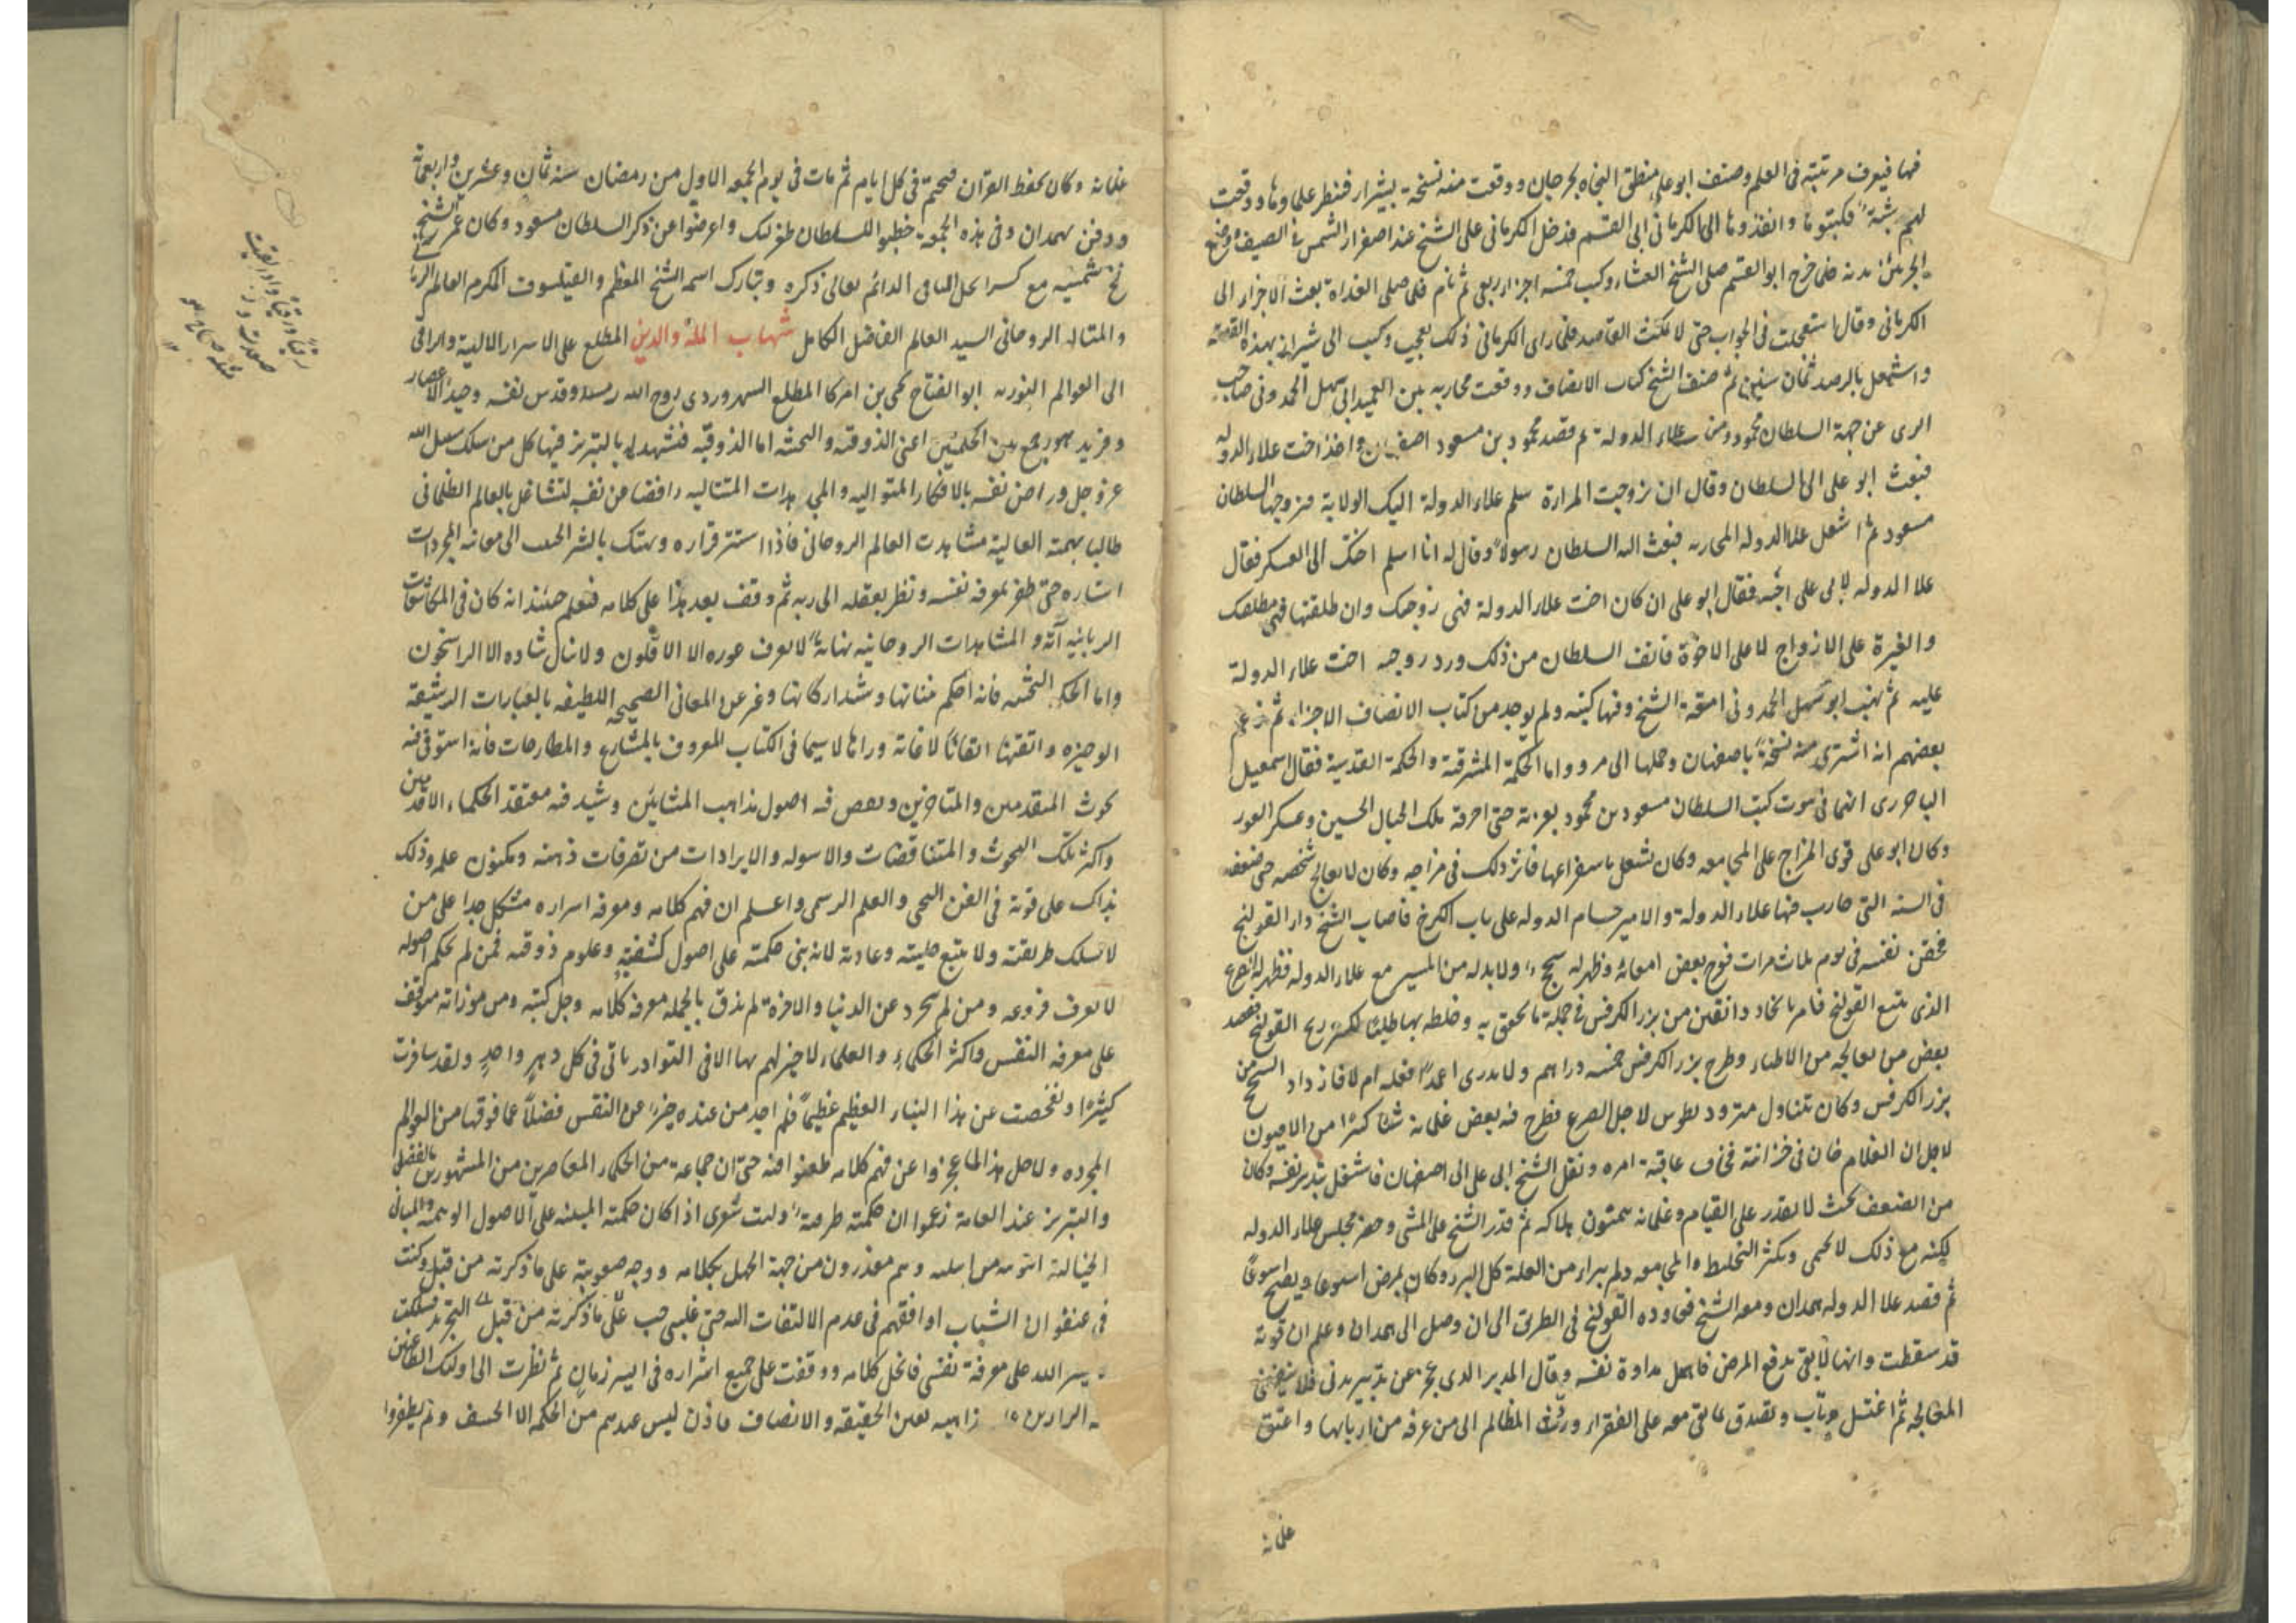 فيها فيعرف مرتبته في العلم وصنف ابو علي منطق النجاة بجرجان ووقعت منه نسخة بشيراز فنظر علماوها ووقعت
لهم شبهة فكتبوها وانفذوها الى الكرماني ابي القسم فدخل الكرماني على الشيخ عند اصفرار الشمس في الصيف وضع
الجزء بين يديه فلما خرج ابو القسم صلى الشيخ العشاء وكتب خمسة اجزاء ربعي ثم نام فلما صلى الغداة بعث الاجزاء الى
الكرماني وقال استعجلت في الجواب حتى لا يمكث القاصد فلما راى الكرماني ذلك تعجب وكتب الى شيراز بهذه القصة
واشتغل بالرصد ثمان سنين ثم صنف الشيخ كتاب الانصاف ووقعت محاربة بين العميد ابي سهل الحمدوني صاحب
الرى عن جهة السلطان محمود ومن علاء الدولة ثم قصد محمود بن مسعود اصفهان واخذ اخت علاء الدوله
فبعث ابو على الى السلطان وقال ان تزوجت المراءة سلم علاء الدولة اليك الولاية فزوجها السلطان
مسعود ثم اشتغل علا الدوله المحاربه فبعث اليه السلطان رسولا وقال له انا اسلم اختك الى العسكر فقال
علا الدوله لابي على اجبه فقال ابو على ان كان اخت علاء الدولة فهى زوجتك وان طلقتها فهى مطلقتك
والغيرة على الازواج لا على الاخوة فانف السلطان من ذلك ورد زوجه اخت علاء الدولة
عليه ثم نهب ابو سهل الحمدوني امتعة الشيخ وفيها كتبه ولم يوجد من كتاب الانصاف الا جزاء ثم زعم
بعضهم انه اشترى منه نسخة باصفهان وحملها الى مرو واما الحكمة المشرقية والحكمة القدسية فقال اسمعيل
الباخرزى انهما في بيوت كتب السلطان مسعود بن محمود بغزنة حتى احرقه ملك الجبال الحسين وعسكر الغور
وكان ابو على قوى المزاج على المجامعه وكان يشتغل باستفراغها فاثر ذلك في مزاجه وكان لا يعالج شخصه حتى ضعف
في السنة التي حارب فيها علاء الدولة والامير حسام الدوله على باب الكرخ فاصاب الشيخ داء القولنج
فحقن نفسه في يوم ثلاث مرات فقرح بعض امعائه وظهر له سحج ولا بد له من المسير مع علاء الدوله فظهر له الصرع
الذى يتبع القولنج فامر باتخاذ دانقين من بزر الكرفس في جملة ما يحقن به وخلطه بها طلبا لكسر ريح القولنج فقصد
بعض من يعالجه من الاطباء وطرح بزر الكرفس خمسه دراهم ولا يدرى اعمدا فعله ام لا فازداد السحج من
بزر الكرفس وكان يتناول مترودبطوس لاجل الصرع فطرح فيه بعض غلمانه شيئا كثيرا من الافيون
لاجل ان الغلام خان في خزانته فخاف عاقبة امره ونقل الشيخ ابى على الى اصفهان فاشتغل بتدبير نفسه وكان
من الضعف بحيث لا يقدر على القيام وغلمانه يتمنون هلاكه ثم قدر الشيخ على المشي وحضر مجلس علاء الدوله
لكنه مع ذلك لا يحمى ويكثر التخليط والمجامعه ولم يبراء من العلة كل البرء وكان يمرض اسبوعا ويصح اسبوعا
ثم قصد علا الدوله همدان ومعه الشيخ فعاوده القولنج في الطريق الى ان وصل الى همدان وعلم ان قوته
قد سقطت وانها لا يفي بدفع المرض فاهمل مداواة نفسه وقال المدبر الذى عجز عن تدبير بدنى فلا ينفعني
المعالجه ثم اغتسل وتاب وتصدق بما بقى معه على الفقراء ورد المظالم الى من عرفه من اربابها واعتق
غلمانه
غلمانه وكان يحفظ القرآن فيختم في كل ايام ثم مات في يوم الجمعه الاول من رمضان سنه ثمان وعشرين واربعمائة
ودفن بهمدان وفي هذه الجمعة خطبوا للسلطان طغرلبك واعرضوا عن ذكر السلطان مسعود وكان عمر الشيخ
نح شمسيه مع كسر الباقى الدائم تعالى ذكره وتبارك اسمه الشيخ المعظم والفيلسوف المكرم العالم الربا
والمتاله الروحاني السيد العالم الفاضل الكامل شهاب الملة والدين المطلع على الاسرار الالهية والراقى
الى العوالم النوريه ابو الفتاح يحيى بن اميركا المطلع السهروردى روح الله رمسه وقدس نفسه وحيد الاعصار
وفريد جمع بين الحكمتين اعنى الذوقيه والبحثيه اما الذوقيه فتشهد له بالتبريز فيها كل من سلك سبيل الله
عز وجل وراض نفسه بالافكار المتواليه والمجاهدات المتتاليه رافضا عن نفسه التشاغل بالعالم الظلماني
طالبا بهمته العالية مشاهدت العالم الروحاني فاذا استقر قراره وتهتك بالسير الحثيث الى معاينه المجردات
استاره حتى ظفر بمعرفه نفسه ونظر بعقله الى ربه ثم وقف بعد هذا على كلامه فيعلم حينئذ انه كان في المكاشفات
الربانيه آية والمشاهدات الروحانيه نهاية لا يعرف غوره الا الاقلون ولا ينال شاوه الا الراسخون
واما الحكمة البحثيه فانه احكم بنيانها وشيد اركانها وعبر عن المعاني الصحيحه اللطيفه بالعبارات الرشيقة
الوجيزه واتقنها اتقانا لا غاية وراها لا سيما في الكتاب المعروف بالمشارع والمطارحات فانه استوفى فيه
بحوث المتقدمين والمتاخرين ونقض فيه اصول مذاهب المشائين وشيد فيه معتقد الحكماء الاقدمين
واكثر تلك البحوث والمتناقضات والاسوله والايرادات من تصرفات ذهنه ومكنون علمه وذلك
يدلك على قوته في الفن البحثى والعلم الرسمى واعلم ان فهم كلامه ومعرفه اسراره مشكل جدا على من
لا يسلك طريقته ولا يتبع خليقته وعادته لانه بنى حكمته على اصول كشفية وعلوم ذوقيه فمن لم يحكم اصوله
لا يعرف فروعه ومن لم يتجرد عن الدنيا والاخرة لم يذق بالجمله معرفه كلامه وجل كتبه ومرموزاته موقف
على معرفه النفس واكثر الحكماء والعلماء لا خبر لهم بها الا في النوادر ياتى في كل دهر واحد ولقد سافرت
كثيرا وتفحصت عن هذا النباء العظيم عظيما فلم اجد من عنده خبر عن النفس فضلا عما فوقها من العوالم
المجرده ولاجل هذا لما عجزوا عن فهم كلامه طعنوا فيه حتى ان جماعة من الحكماء المعاصرين من المشهورين بالفضل
والتبريز عند العامة زعموا ان حكمته طرية وليت شعرى اذا كان حكمته المبنيه على الاصول
الخيالية وهم معذرون من جهة الجهل بكلامه ووجه صعوبته على ما ذكرته من قبل وكنت
في عنفوان الشباب اوافقهم في عدم الالتفات اليه حتى غلبنى حب على ما ذكرته من قبل التجرد فسلكت
يسر الله على معرفة نفسى فانحل كلامه ووقفت على جميع اسراره في ايسر زمان ثم نظرت الى اولئك الطاعنين
بعين الحقيقه والانصاف فاذن ليس عندهم من الحكمه الا الحشف ولم يظفروا